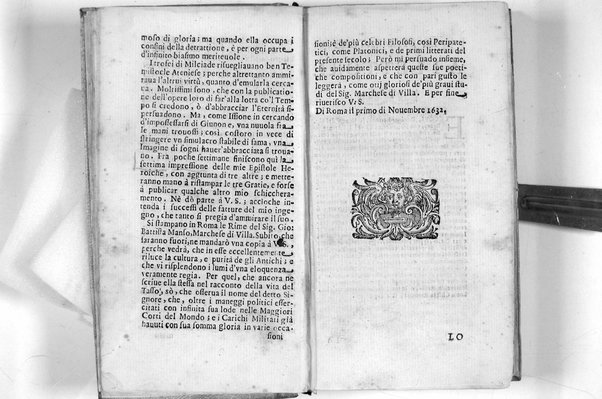 moso di gloria; ma quando ella occupa i
confini della detrattione, é per ogni parte
d'infinito biasmo meriteuole.
I trofei di Milciade risuegliauano ben Te-
mistocle Ateniese; perche allettato ammi-
raua l'altrui virtù, quanto d'emularla cerca-
ua. Moltissimi sono, che con la publicatio-
ne dell'opere loro di far'alla lotta co'l Tem-
po si credono, ò d'abbracciar l'Eternità si
persuadono. Ma, come Issione in cercando
d'impossessarsi di Giunon e, vna nuuola fra
le mani trouossi; cosi costoro in vece di
stringere vn simulacro stabile di fama, vna
Imagine di sogni hauer'abbracciata si troua-
no. Fra poche settimane finiscono qui la
settima impressione delle mie Epistole He-
roiche, con aggiunta di tre altre; e mette-
ranno mano à ristampar le tre Gratie, e forse
à publicar qualche altro mio schiecchera-
mento. Nè dò parte à V. S.; accioche in-
tenda i successi delle fatture del mio inge-
gno, che tanto si pregia d'ammirare il suo.
Si stampano in Roma le Rime del Sig. Gio:
Battista Manso, Marchese di Villa. Subito, che
saranno fuori, ne mandarò vna copia à V. S.,
perche vedrà, che in esse eccellentemente
riluce la cultura, e purità de gli Antichi; e
che vi risplendono i lumi d'vna eloquenza
veramente regia. Per quel, che ancora ne
scriue ella stessa nel racconto della vita del
Tasso, sò, che osserua il nome del detto Si-
gnore, che, oltre i maneggi politici esser-
citati con infinita sua lode nelle Maggiori
Corti del Mondo; e i Carichi Militari già
hauuti con sua somma gloria in varie occa-
sioni
sioni è de'più celebri Filosofi, così Peripate-
tici, come Platonici, e de primi litterati del
presente secolo; Però mi persuado insieme,
che auidamente aspetterà queste sue poeti-
che compositioni, e che con pari gusto le
leggerà, come otij gloriosi de più graui studi
di del Sig. Marchese di Villa. E per fine
riuerisco V. S.
Di Roma il primo di Nouembre 1632.
LO